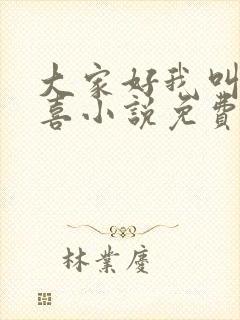 大家好我叫
喜小說免費
林業慶